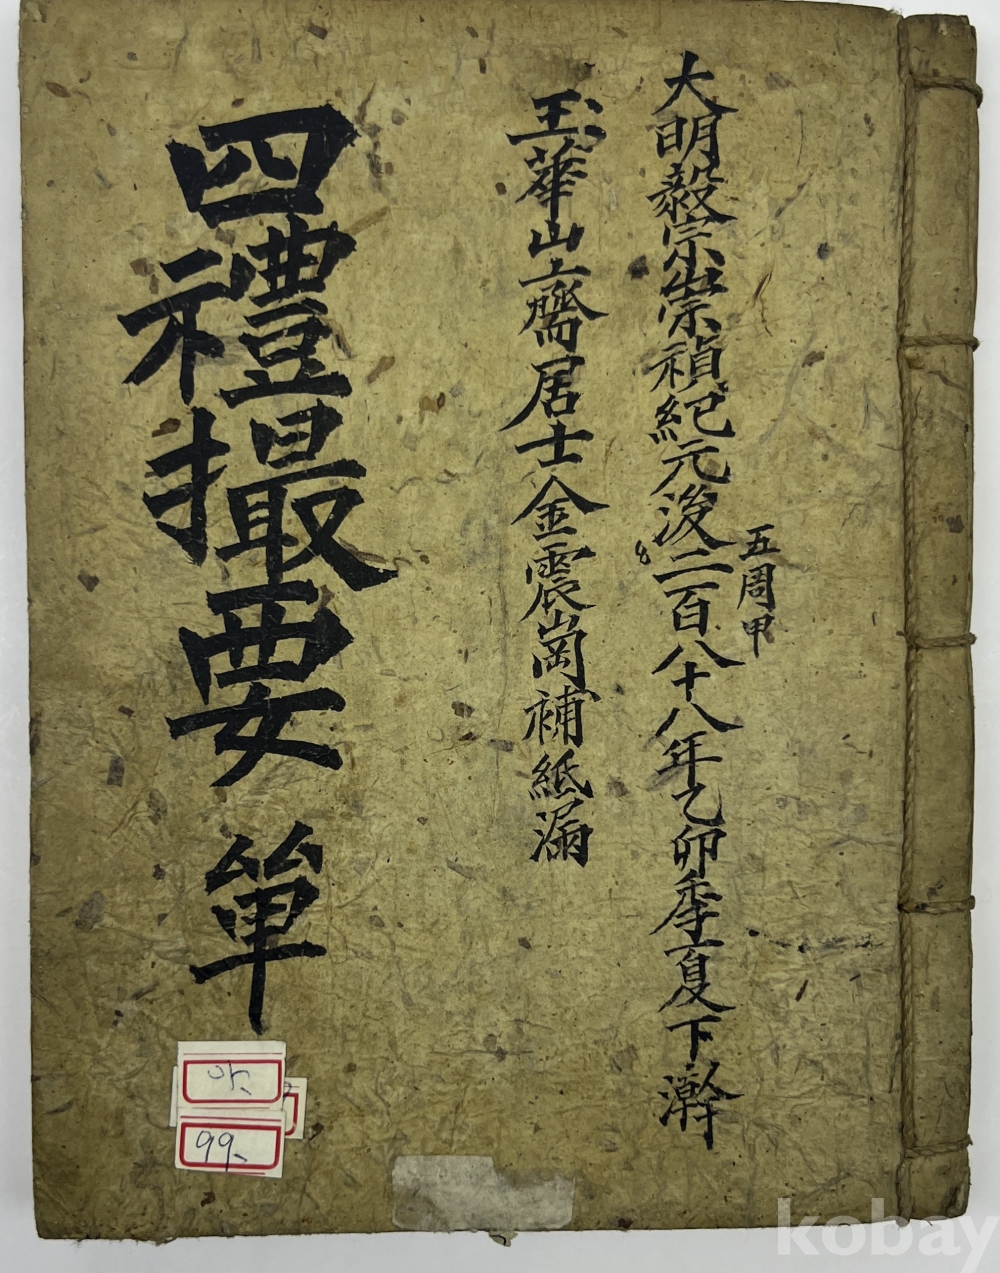 五周甲
大明毅宗崇禎紀元後二百八十八年乙卯季夏下澣
玉華山齋居士金震崗補紙漏
四禮撮要 單
99-
kobay